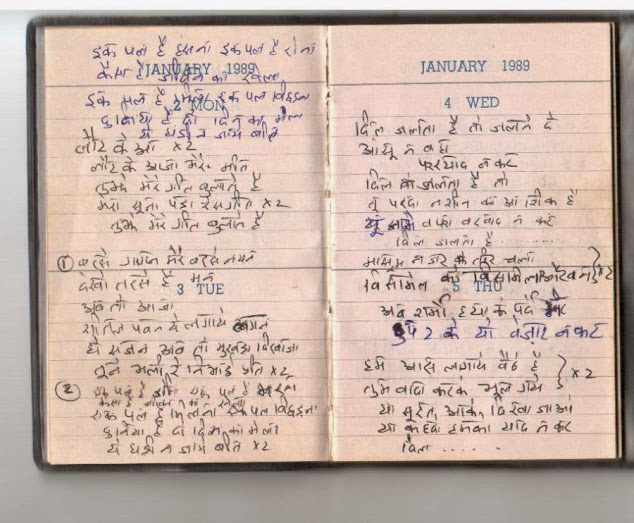 इक पल है हंसना इक पल है रोना
कैसा है जीवन का खेला
JANUARY 1989
इक पल है मिलना इक पल बिछड़ना
2 MON
दुनिया है दो दिन का मेला
ये घड़ी न जाये बीत
लौट के आ x2
लौट के आजा मेरे मीत
तुझे मेरे गीत बुलाते है
मेरा सूना पड़ा रे संगीत x2
तुझे मेरे गीत बुलाते है
① बरसे गगन मेरे बरसे नयन
देखो तरसे है मन
3 TUE
अब तो आजा
शीतल पवन ये लगाये अगन
ओ सजन अब तो मुखड़ा दिखाजा
तूने भली रे निभाई प्रीत x2
② एक पल है एक पल है
एक पल है मिलना एक पल बिछड़ना
दुनिया है दो दिन का मेला
ये घड़ी न जाये बीत x2
JANUARY 1989
4 WED
दिल जलता है तो जलने दे
आंसू न बहा
फरयाद न कर
दिल जलता है तो
तू परदा नशीन का आशिक है
यूं नामे वफा बरबाद न कर
दिल जलता है ........
मासूम नजर के तीर चला
5 THU
अब शर्मो हया के पर्दे में
यूं छुप 2 के बेदाद न कर
हम आस लगाये बैठे है
x2
तुम वादा करके भूल गये
या सूरत आके दिखा जाओ
या कह दो हमको याद न कर
दिल .....